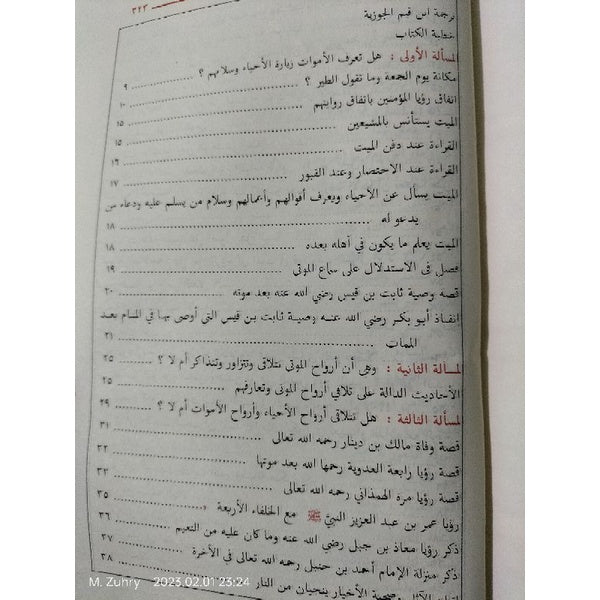 ٣٢٣
ترجمة ابن قيم الجوزية
خطبة الكتاب
المسألة الأولى : هل تعرف الأموات زيارة الأحياء وسلامهم ؟ ٩
مكانة يوم الجمعة وما تقول الطير ؟ ١٠
اتفاق رؤيا المؤمنين باتفاق روايتهم ١٥
الميت يستأنس بالمشيعين ١٥
القراءة عند دفن الميت ١٦
القراءة عند الاحتضار وعند القبور ١٧
الميت يسأل عن الأحياء ويعرف أقوالهم وأعمالهم وسلام من يسلم عليه ودعاء من
يدعو له ١٨
الميت يعلم ما يكون في أهله بعده ١٨
فصل في الاستدلال على سماع الموتى ١٩
قصة وصية ثابت بن قيس رضي الله عنه بعد موته ٢٠
انفاذ أبو بكر رضي الله عنه وصية ثابت بن قيس التي أوصى بها في المنام بعد
الممات ٢١
المسألة الثانية : وهى أن أرواح الموتى تتلاقى وتتزاور وتتذاكر أم لا ؟ ٢٥
الأحاديث الدالة على تلاقي أرواح الموتى وتعارفهم ٢٥
المسألة الثالثة : هل تتلاقى أرواح الأحياء وأرواح الأموات أم لا ؟ ٢٩
قصة وفاة مالك بن دينار رحمه الله تعالى ٣١
قصة رؤيا رابعة العدوية رحمها الله بعد موتها ٣٢
قصة رؤيا مرة الهمذاني رحمه الله تعالى ٣٣
رؤيا عمر بن عبد العزيز النبيَّ ﷺ مع الخلفاء الأربعة ٣٥
ذكر رؤيا معاذ بن جبل رضي الله عنه وما كان عليه من النعيم ٣٦
ذكر منزلة الإمام أحمد بن حنبل رحمه الله تعالى في الأخرة ٣٧
وصحبة الأخيار ينجيان من النار ٣٨
M. Zuhry 2023.02.01 23:24